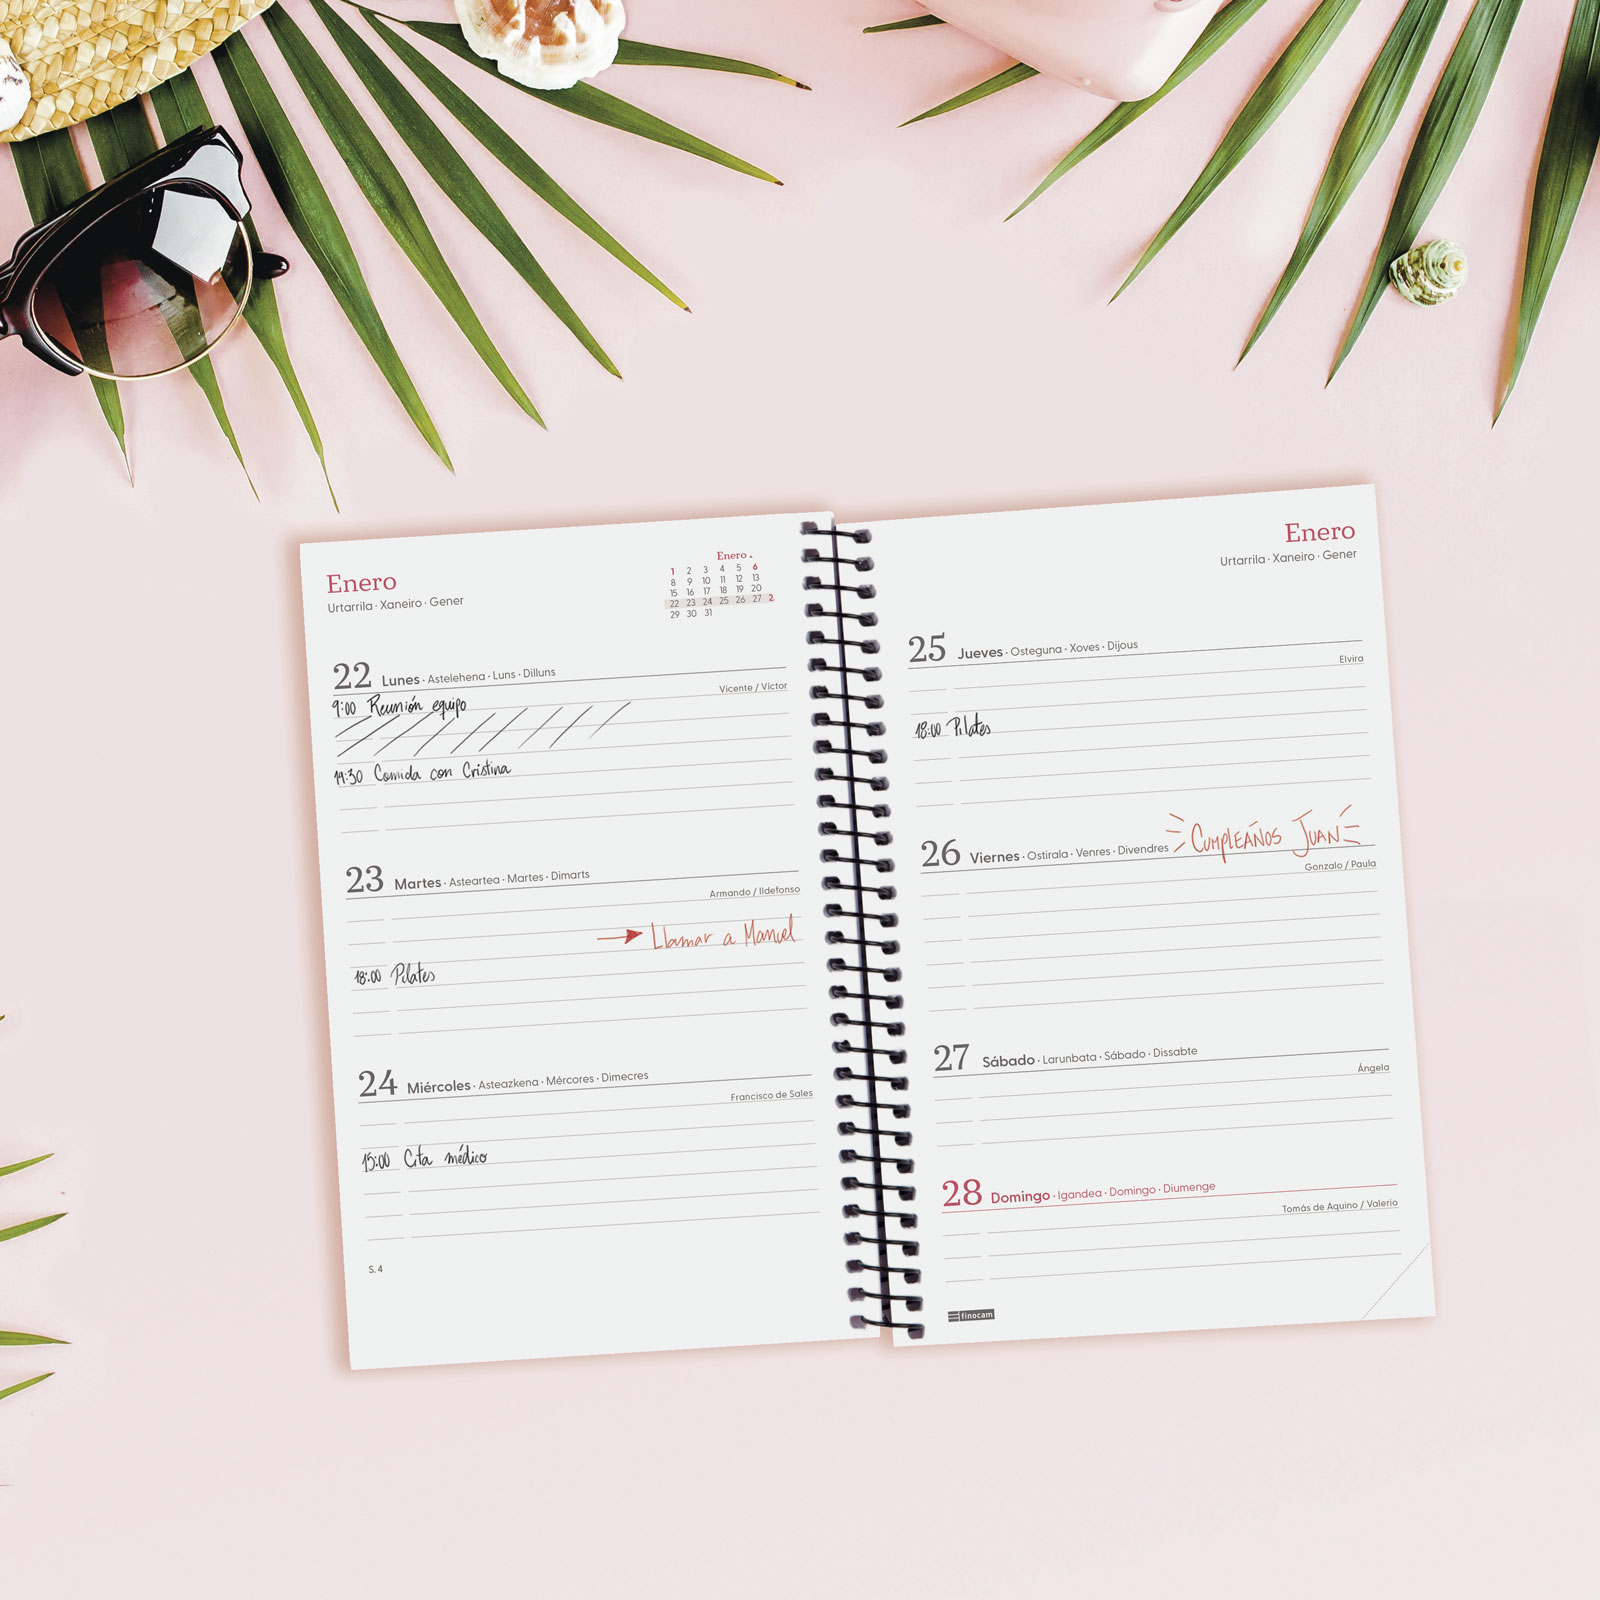 Enero
Urtarrila · Xaneiro · Gener
Enero .
1 2 3 4 5 6
8 9 10 11 12 13
15 16 17 18 19 20
22 23 24 25 26 27 2
29 30 31
22 Lunes · Astelehena · Luns · Dilluns
Vicente / Víctor
9:00 Reunión equipo
14:30 Comida con Cristina
23 Martes · Asteartea · Martes · Dimarts
Armando / Ildefonso
Llamar a Manuel
18:00 Pilates
24 Miércoles · Asteazkena · Mércores · Dimecres
Francisco de Sales
15:00 Cita médico
S. 4
Enero
Urtarrila · Xaneiro · Gener
25 Jueves · Osteguna · Xoves · Dijous
Elvira
18:00 Pilates
26 Viernes · Ostirala · Venres · Divendres CUMPLEAÑOS JUAN
Gonzalo / Paula
27 Sábado · Larunbata · Sábado · Dissabte
Ángela
28 Domingo · Igandea · Domingo · Diumenge
Tomás de Aquino / Valerio
finocam